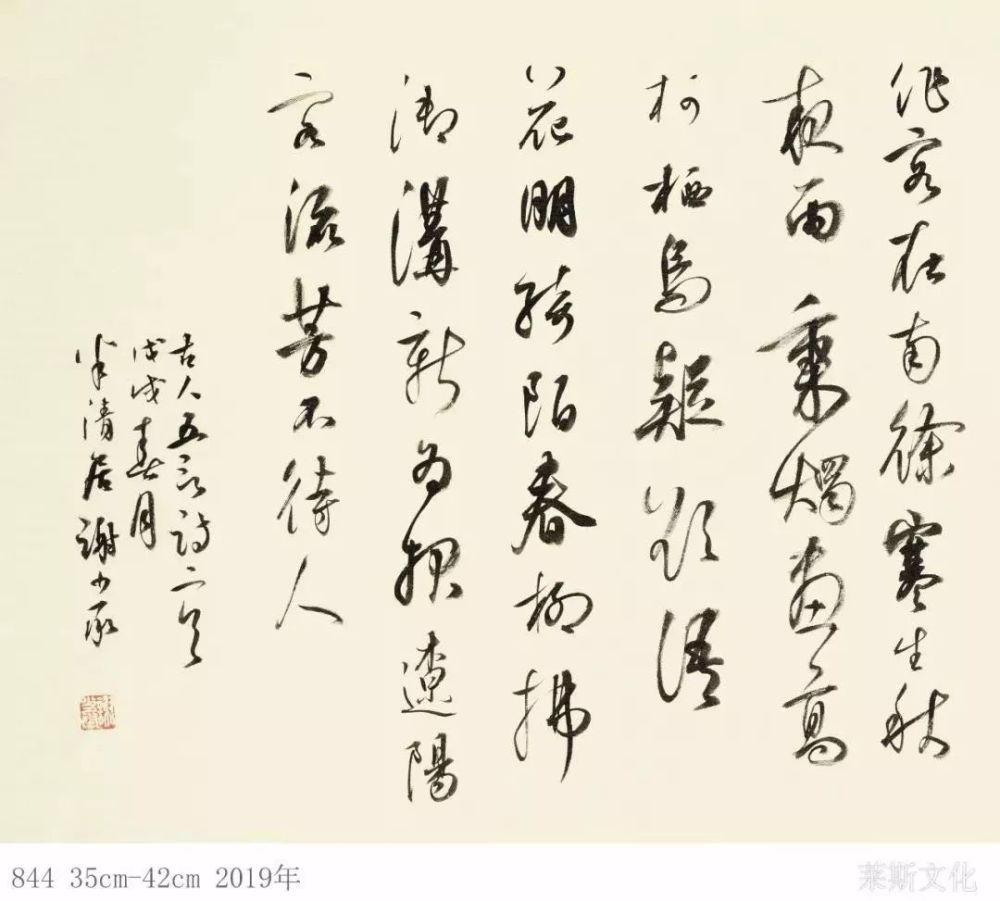 作客在南徐寒生秋
夜雨秉燭畫高
柯栖鳥疑欲語
花明綺陌春柳拂
御溝新為報遼陽
客流芳不待人
古人五言詩二首
戊戌春月
半清居謝少承
844 35cm-42cm 2019年
莱斯文化